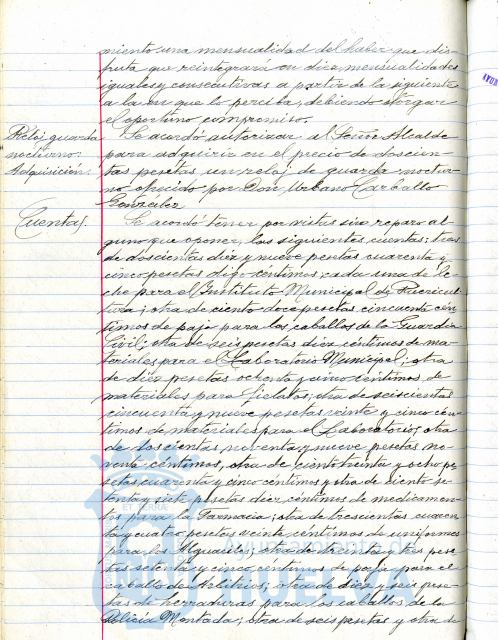 miento una mensualidad del haber que dis-
fruta que reintegrará en diez mensualidades
iguales y consecutivas a partir de la siguiente
a la en que lo perciba, debiendo otorgar
el oportuno compromiso.
Reloj guarda
nocturno.
Adquisición.
Se acordó autorizar al Señor Alcalde
para adquirir en el precio de doscien-
tas pesetas un reloj de guarda noctur-
no ofrecido por Don Urbano Carballo
González
Cuentas.
Se acordó tener por vistas sin reparo al-
guno que oponer, las siguientes cuentas: tres
de doscientas diez y nueve pesetas cuarenta y
cinco pesetas digo céntimos, cada una de le-
che para el Instituto Municipal de Puericul-
tura; otra de ciento doce pesetas cincuenta cén-
timos de paja para los caballos de la Guardia
Civil; otra de seis pesetas diez céntimos de ma-
teriales para el Laboratorio Municipal; otra
de diez pesetas ochenta y cinco céntimos de
materiales para Fielatos; otra de seiscientas
cincuenta y nueve pesetas veinte y cinco cén-
timos de materiales para el Laboratorio; otra
de doscientas noventa y nueve pesetas no-
venta céntimos, otra de ciento treinta y ocho pe-
setas cuarenta y cinco céntimos y otra de ciento se-
tenta y siete pesetas diez céntimos de medicamen-
tos para la Farmacia; otra de trescientas cuaren-
ta y cuatro pesetas veinte céntimos de uniformes
para los Alguaciles; otra de treinta y tres pese-
tas setenta y cinco céntimos de paja para el
caballo de Arbitrios; otra de diez y seis pese-
tas de herraduras para los caballos de la
Policía Montada; otra de seis pesetas y otra de
ET TERRÆ
Ayuntamiento de
HUELVA